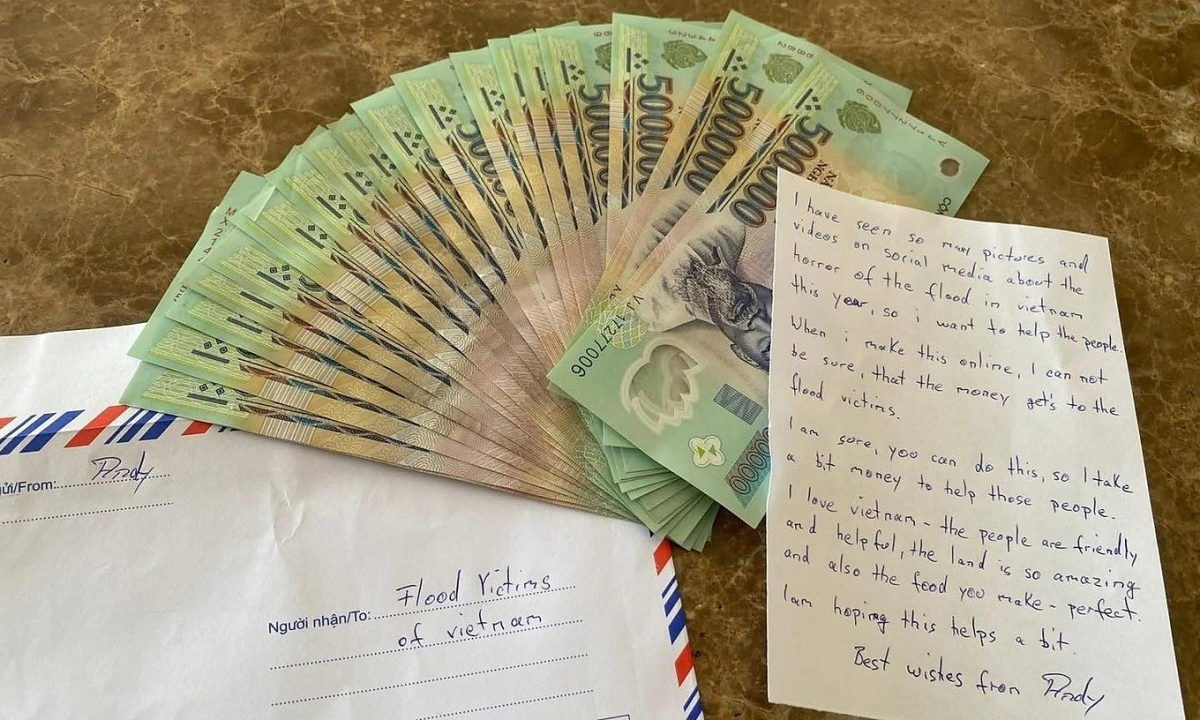 500000
500000
500000
500000
VJ11277006
ửi/From: Andy
Người nhận/To: Flood Victims
of vietnam
I have seen so many pictures and
videos on social media about the
horror of the flood in vietnam
this year, so i want to help the people.
When i make this online, I can not
be sure, that the money get's to the
flood victims.
I am sore, you can do this, so I take
a bit money to help those people.
I love vietnam - the people are friendly
and helpful, the land is so amazing
and also the food you make - perfect.
I am hoping this helps a bit.
Best wishes from Andy